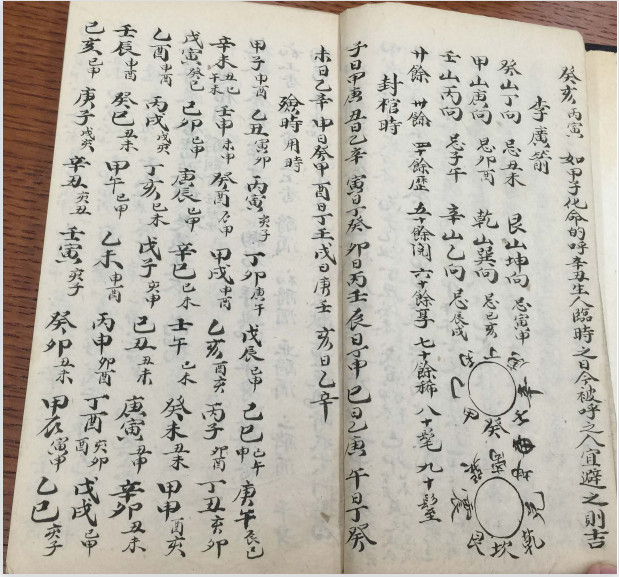 癸亥 丙寅 如甲子化命的呼辛丑生人臨時之日令被呼之人宜避之則吉
李廣箭
癸山丁向 忌丑未 艮山坤向 忌寅甲
甲山庚向 忌卯酉 乾山巽向 忌巳亥
壬山丙向 忌子午 辛山乙向 忌辰戌
癸
離
震 兌
艮 坎 乾
廿餘 卅餘 罒餘歷 五十餘 六十餘享 七十餘稀 八十耄 九十
封棺時
子日甲庚 丑日乙辛 寅日丁癸 卯日丙壬 辰日丁甲 巳日乙庚 午日丁癸
未日乙辛 申日癸甲 酉日丁壬 戌日庚壬 亥日乙辛
殮時用時
甲子申酉 乙丑寅卯 丙寅亥子 丁卯庚午 戊辰巳申 己巳午 庚午辰巳
辛未丑巳午未 壬申未申 癸酉 甲戌申酉 乙亥酉亥 丙子卯酉 丁丑亥卯
戊寅癸巳 己卯巳申 庚辰巳申 辛巳巳未 壬午巳未 癸未丑未 甲申酉亥
乙酉申酉 丙戌戌亥 丁亥巳未 戊子寅申 己丑丑未 庚寅丑申 辛卯丑未
壬辰申酉 癸巳丑未 甲午巳申 乙未申酉 丙申卯酉 丁酉亥卯酉 戊戌巳申
己亥巳申 庚子戌亥 辛丑亥丑 壬寅亥子 癸卯丑未 甲辰寅申 乙巳亥子